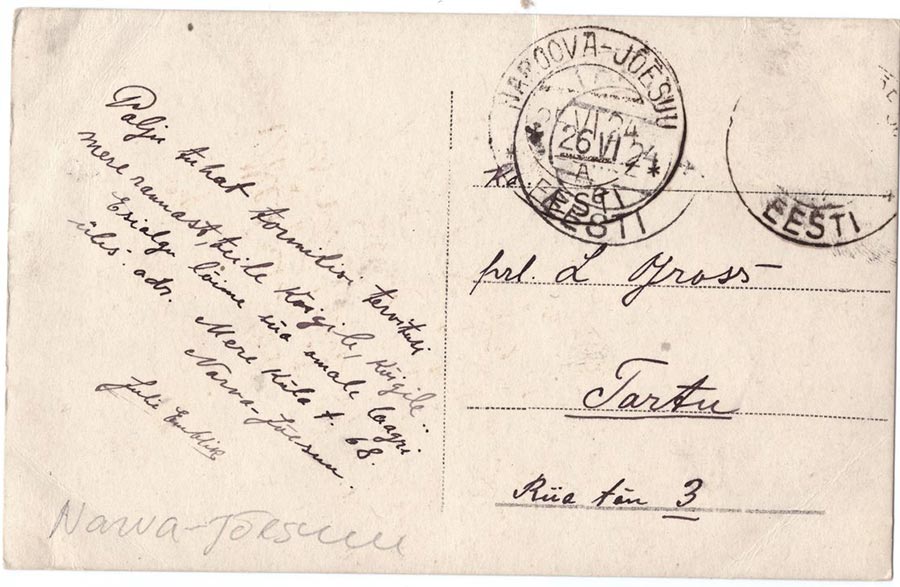 Palju tuhat tormilisi tervitusi
mere rannast, teile kõigile, kõigile..
Esialgu lõime siia omale laagri
üles. adr. Mere Küla t. 68.
Narva-Jõesuu.
Juli
NAROOVA-JÕESUU
26 VI 24
A
EESTI
EESTI
EESTI
prl. L Gross
Tartu
Riia tän 3
Narva-Jõesuu